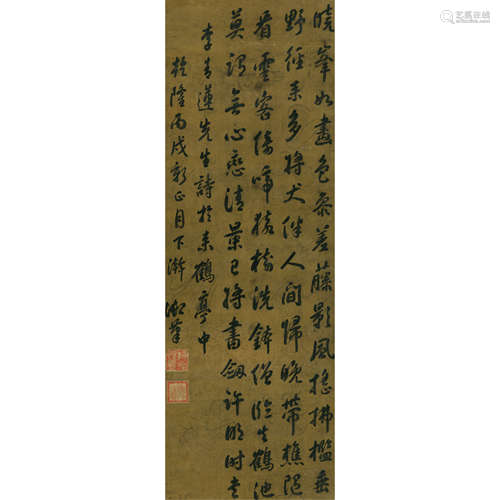 艺狐在线
曉峯如畫色參差藤影風搖拂檻垂
野徑來多將犬伴人間歸晚帶樵隨
看雲客倚啼猿樹洗鉢僧臨失鶴池
莫謂無心戀清景已將書劔許明時右
李青蓮先生詩於來鶴亭中
乾隆丙戌新正月下澣御筆